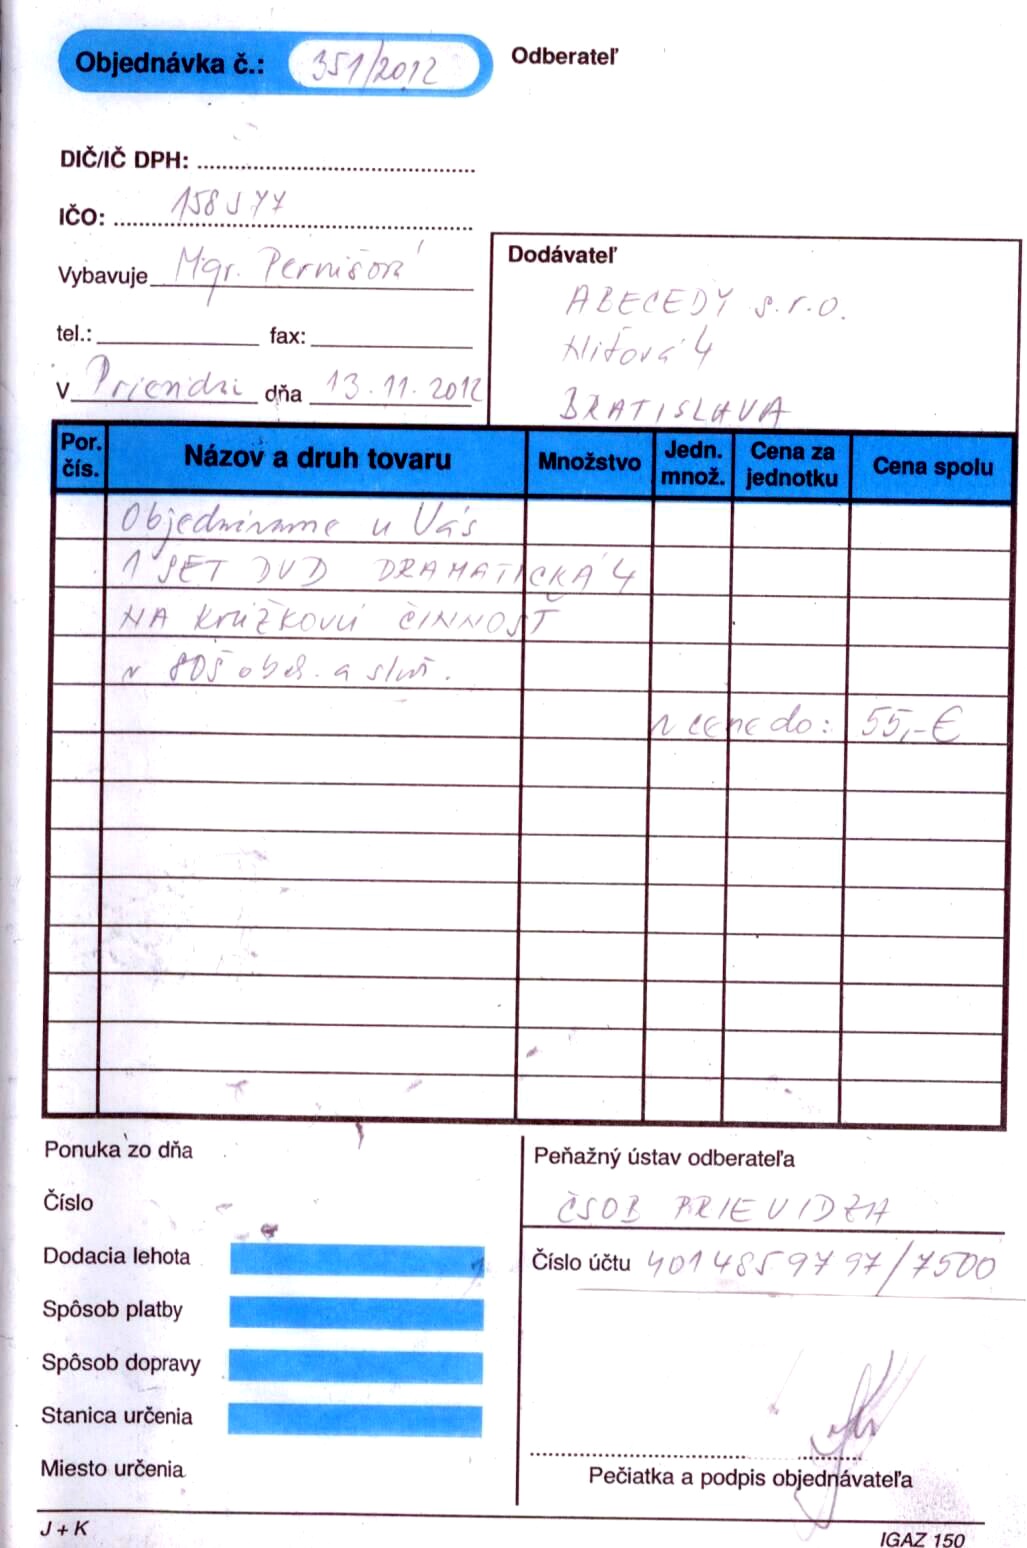 Objednávka č.: 351/2012
Odberateľ
DIČ/IČ DPH:
IČO: 158577
Vybavuje Mgr. Pernišová
tel.: fax:
V dňa 13.11.2012
Dodávateľ
ABECEDY s.r.o.
Niťová 4
BRATISLAVA
Por. čís. Názov a druh tovaru Množstvo Jedn. množ. Cena za jednotku Cena spolu
Objednávame u Vás
1 SET DVD DRAMATICKÁ 4
NA KRÚŽKOVÚ ČINNOSŤ
v SOŠ obch. a služ.
v cene do: 55,-€
Ponuka zo dňa
Číslo
Dodacia lehota
Spôsob platby
Spôsob dopravy
Stanica určenia
Miesto určenia
Peňažný ústav odberateľa
ČSOB PRIEVIDZA
Číslo účtu 4014859797/7500
Pečiatka a podpis objednávateľa
J + K
IGAZ 150